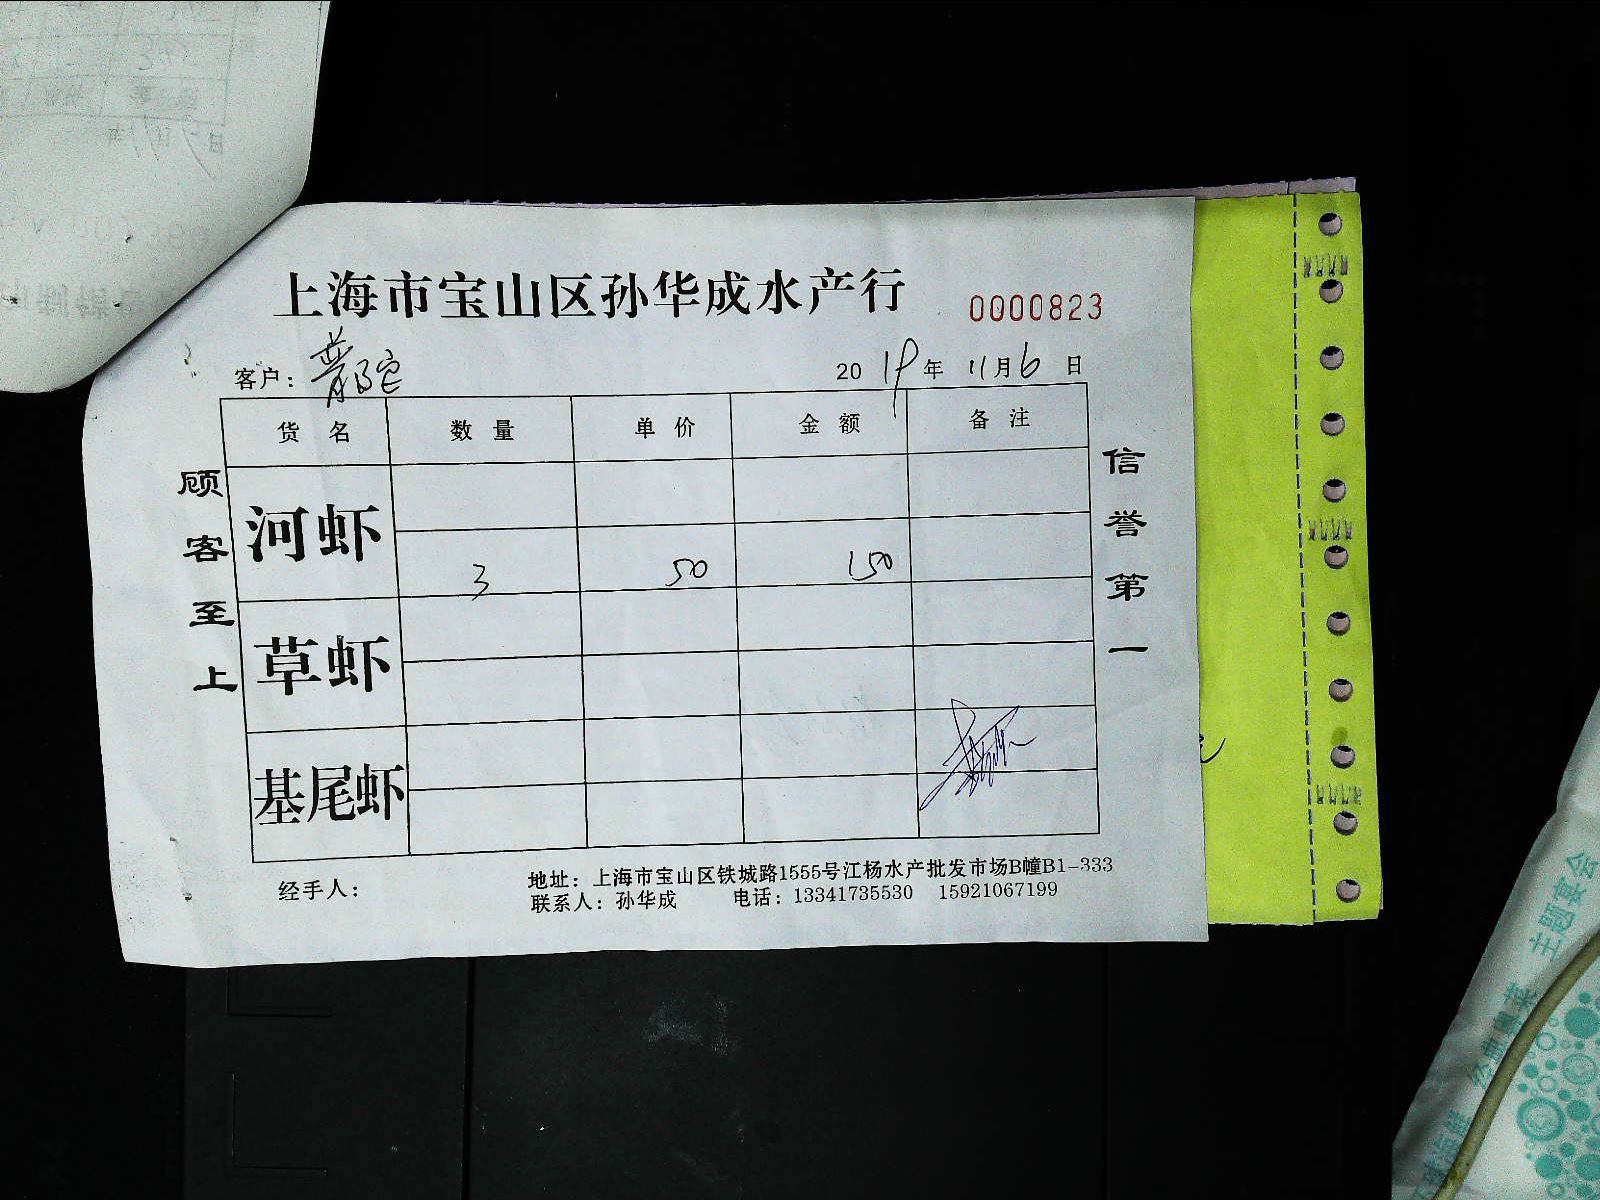 上海市宝山区孙华成水产行 0000823
客户：普陀 2019年11月6日
货名 数量 单价 金额 备注
顾客至上
信誉第一
河虾
3 50 150
草虾
基尾虾
经手人：
地址：上海市宝山区铁城路1555号江杨水产批发市场B幢B1-333
联系人：孙华成 电话：13341735530 15921067199
主题宴会